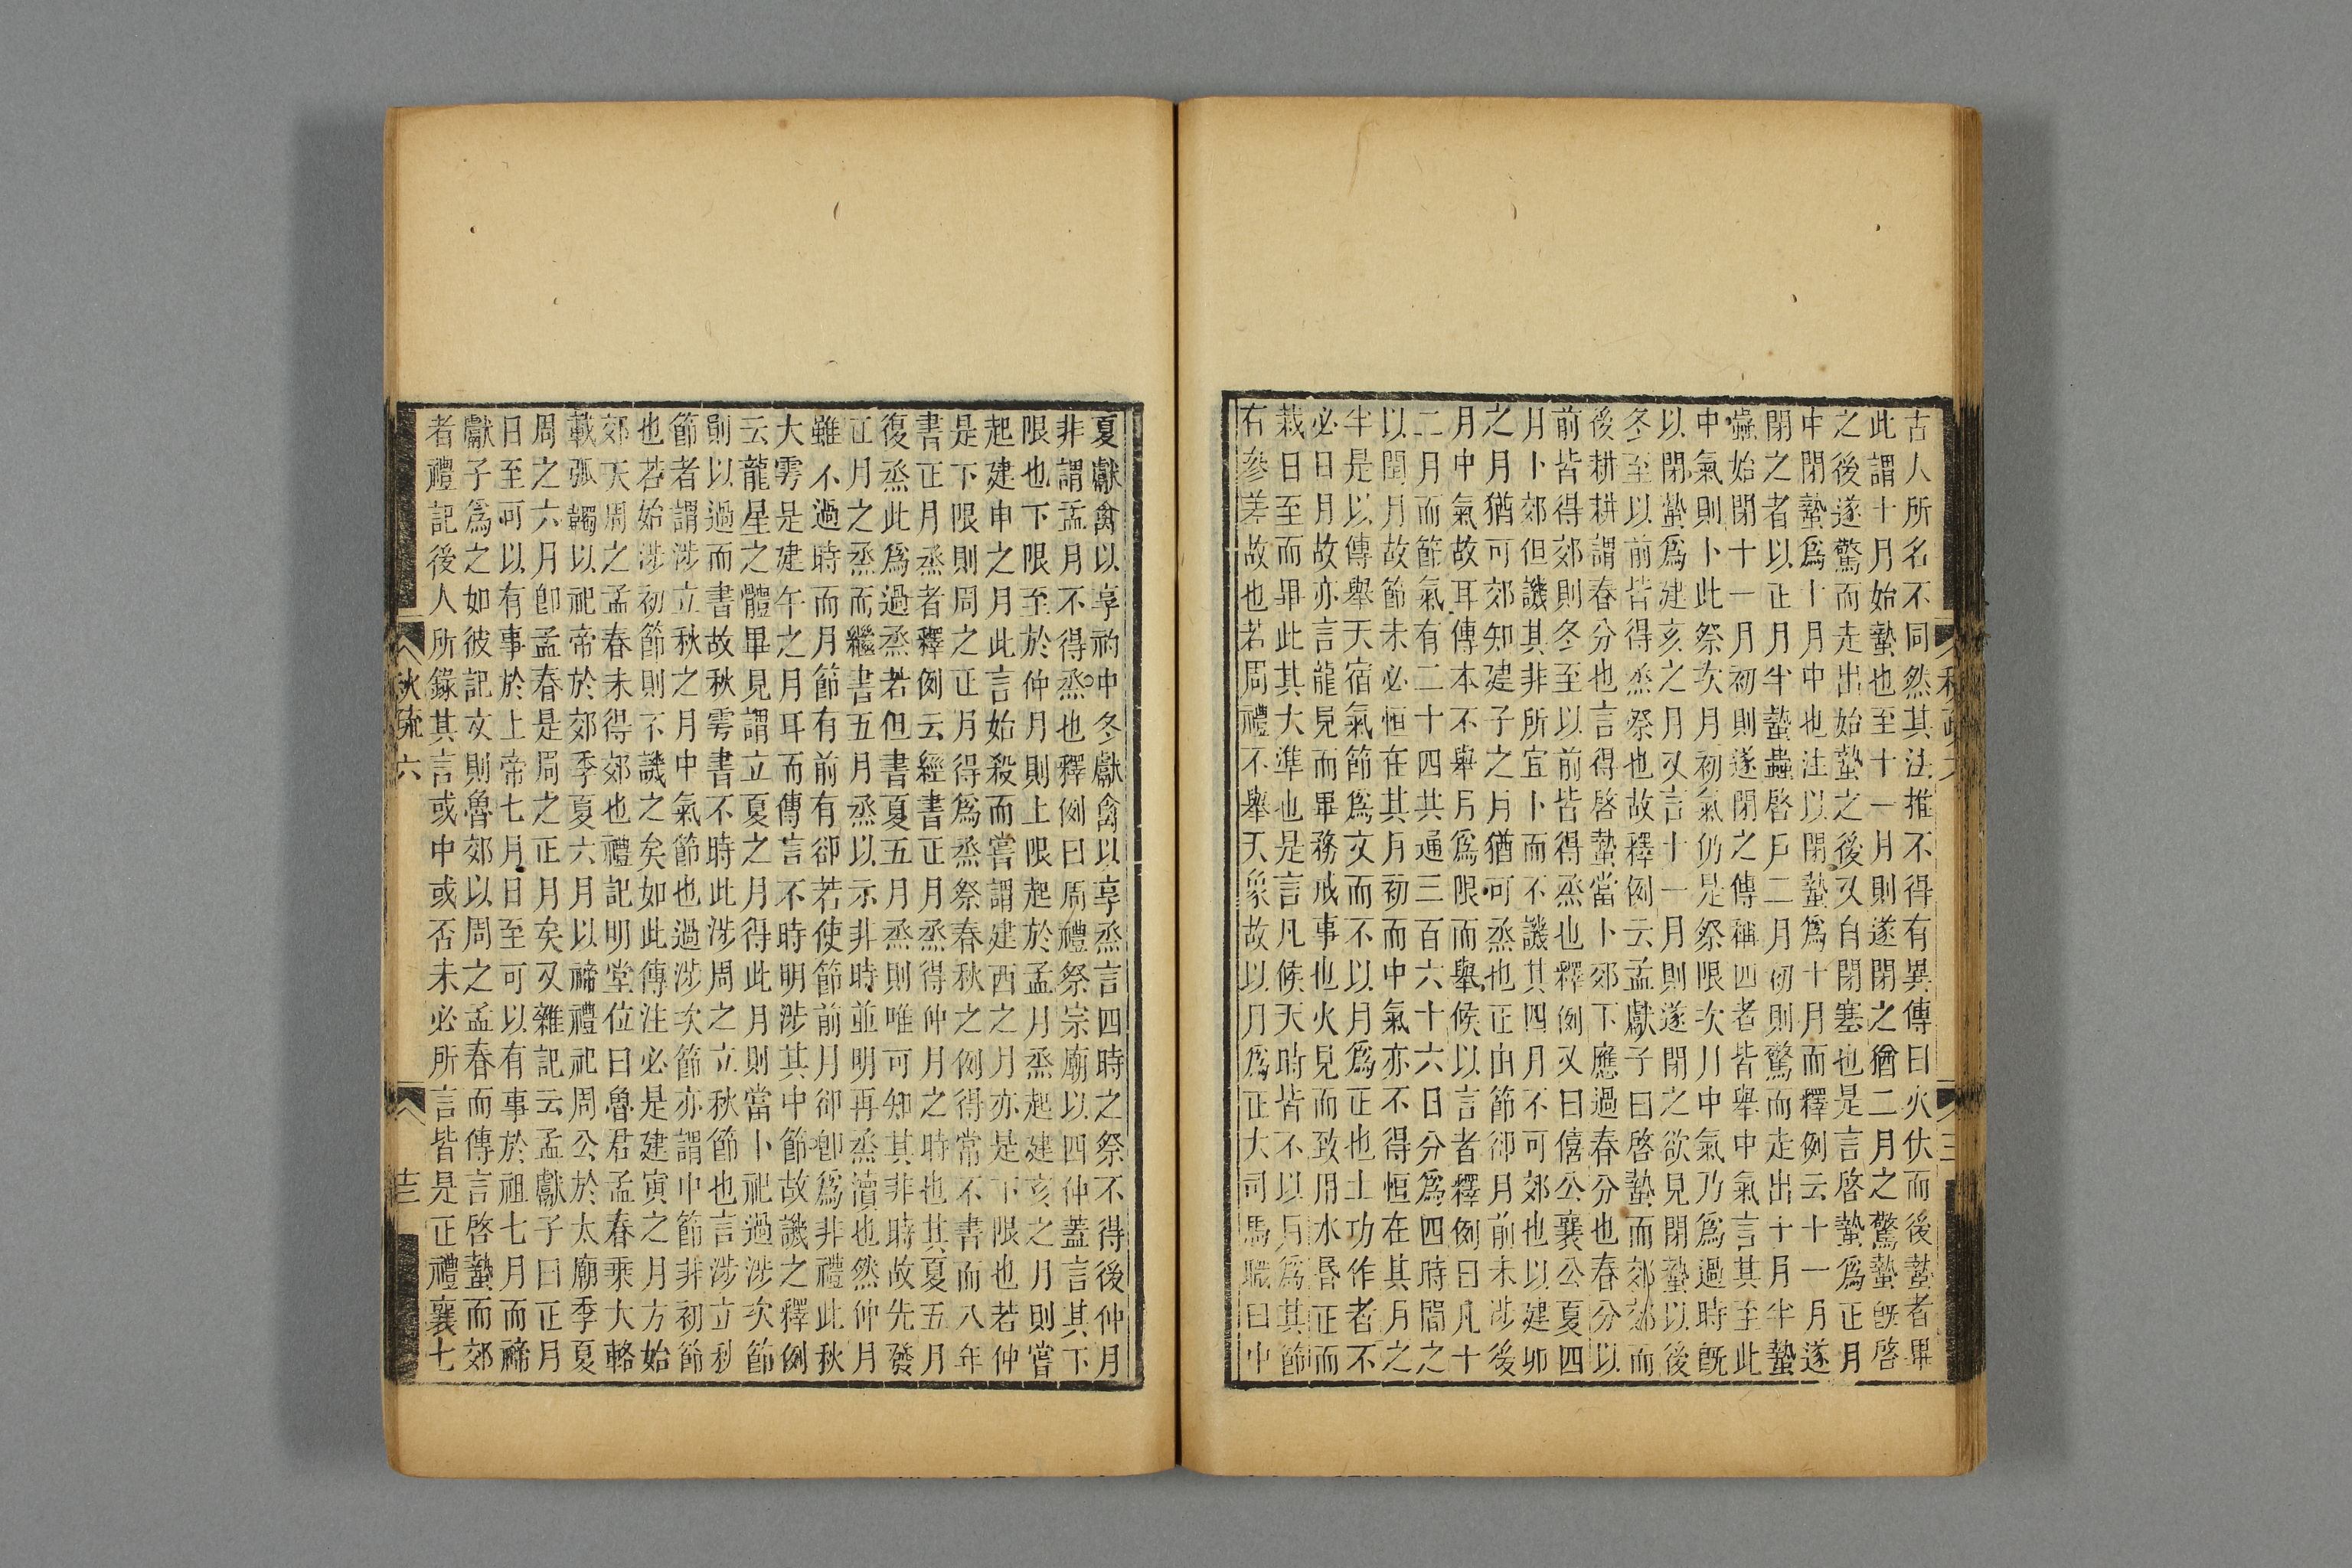 古人所名不同然其法推不得有異傳曰火伏而後蟄者畢
此謂十月始蟄也至十一月則遂閉之猶二月之驚蟄旣啓
之後遂驚而走出始蟄之後又自閉塞也是言啓蟄爲正月
中閉蟄爲十月中也注以閉蟄爲十月而釋例云十一月遂
閉之者以正月半蟄蟲啓戶二月初則驚而走出十月半蟄
蟲始閉十一月初則遂閉之傳稱四者皆舉中氣言其至此
中氣則卜此祭次月初氣仍是祭限次月中氣乃爲過時旣
以閉蟄爲建亥之月又言十一月則遂閉之欲見閉蟄以後
冬至以前皆得烝祭也故釋例云孟獻子曰啓蟄而郊郊而
後耕耕謂春分也言得啓蟄當卜郊不應過春分也春分以
前皆得郊則冬至以前皆得烝也釋例又曰僖公襄公夏四
月卜郊但譏其非所宜卜而不譏其四月不可郊也以建卯
之月猶可郊知建子之月猶可烝也正由節卻月前未涉後
月中氣故耳傳本不舉月爲限而舉候以言者釋例曰凡十
二月而節氣有二十四共通三百六十六日分爲四時間之
以閏月故節未必恒在其月初而中氣亦不得恒在其月之
半是以傳舉天宿氣節爲文而不以月爲正也土功作者不
必日月故亦言龍見而畢務戒事也火見而致用水昏正而
栽日至而畢此其大準也是言凡候天時皆不以月爲其節
有參差故也若周禮不舉天象故以月爲正大司馬職曰中
夏獻禽以享礿中冬獻禽以享烝言四時之祭不得後仲月
非謂孟月不得烝也釋例曰周禮祭宗廟以四仲蓋言其下
限也下限至於仲月則上限起於孟月烝起建亥之月則嘗
起建申之月此言始殺而嘗謂建酉之月亦是下限也若仲
是下限則周之正月得爲烝祭春秋之例得常不書而八年
書正月烝者釋例云經書正月烝得仲月之時也其夏五月
復烝此爲過烝若但書夏五月烝則唯可知其非時故先發
正月之烝而繼書五月烝以示非時並明再烝瀆也然仲月
雖不過時而月節有前有卻若使節前月卻卽爲非禮此秋
大雩是建午之月耳而傳言不時明涉其中節故譏之釋例
云龍星之體畢見謂立夏之月得此月則當卜祀過涉次節
則以過而書故秋雩書不時此涉周之立秋節也言涉立秋
節者謂涉立秋之月中氣節也過涉次節亦謂中節非初節
也若始涉初節則不譏之矣如此傳注必是建寅之月方始
郊天周之孟春未得郊也禮記明堂位曰魯君孟春乘大輅
載弧韣以祀帝於郊季夏六月以禘禮祀周公於太廟季夏
周之六月卽孟春是周之正月矣又雜記云孟獻子曰正月
日至可以有事於上帝七月日至可以有事於祖七月而禘
獻子爲之如彼記文則魯郊以周之孟春而傳言啓蟄而郊
者禮記後人所錄其言或中或否未必所言皆是正禮襄七
秋疏六